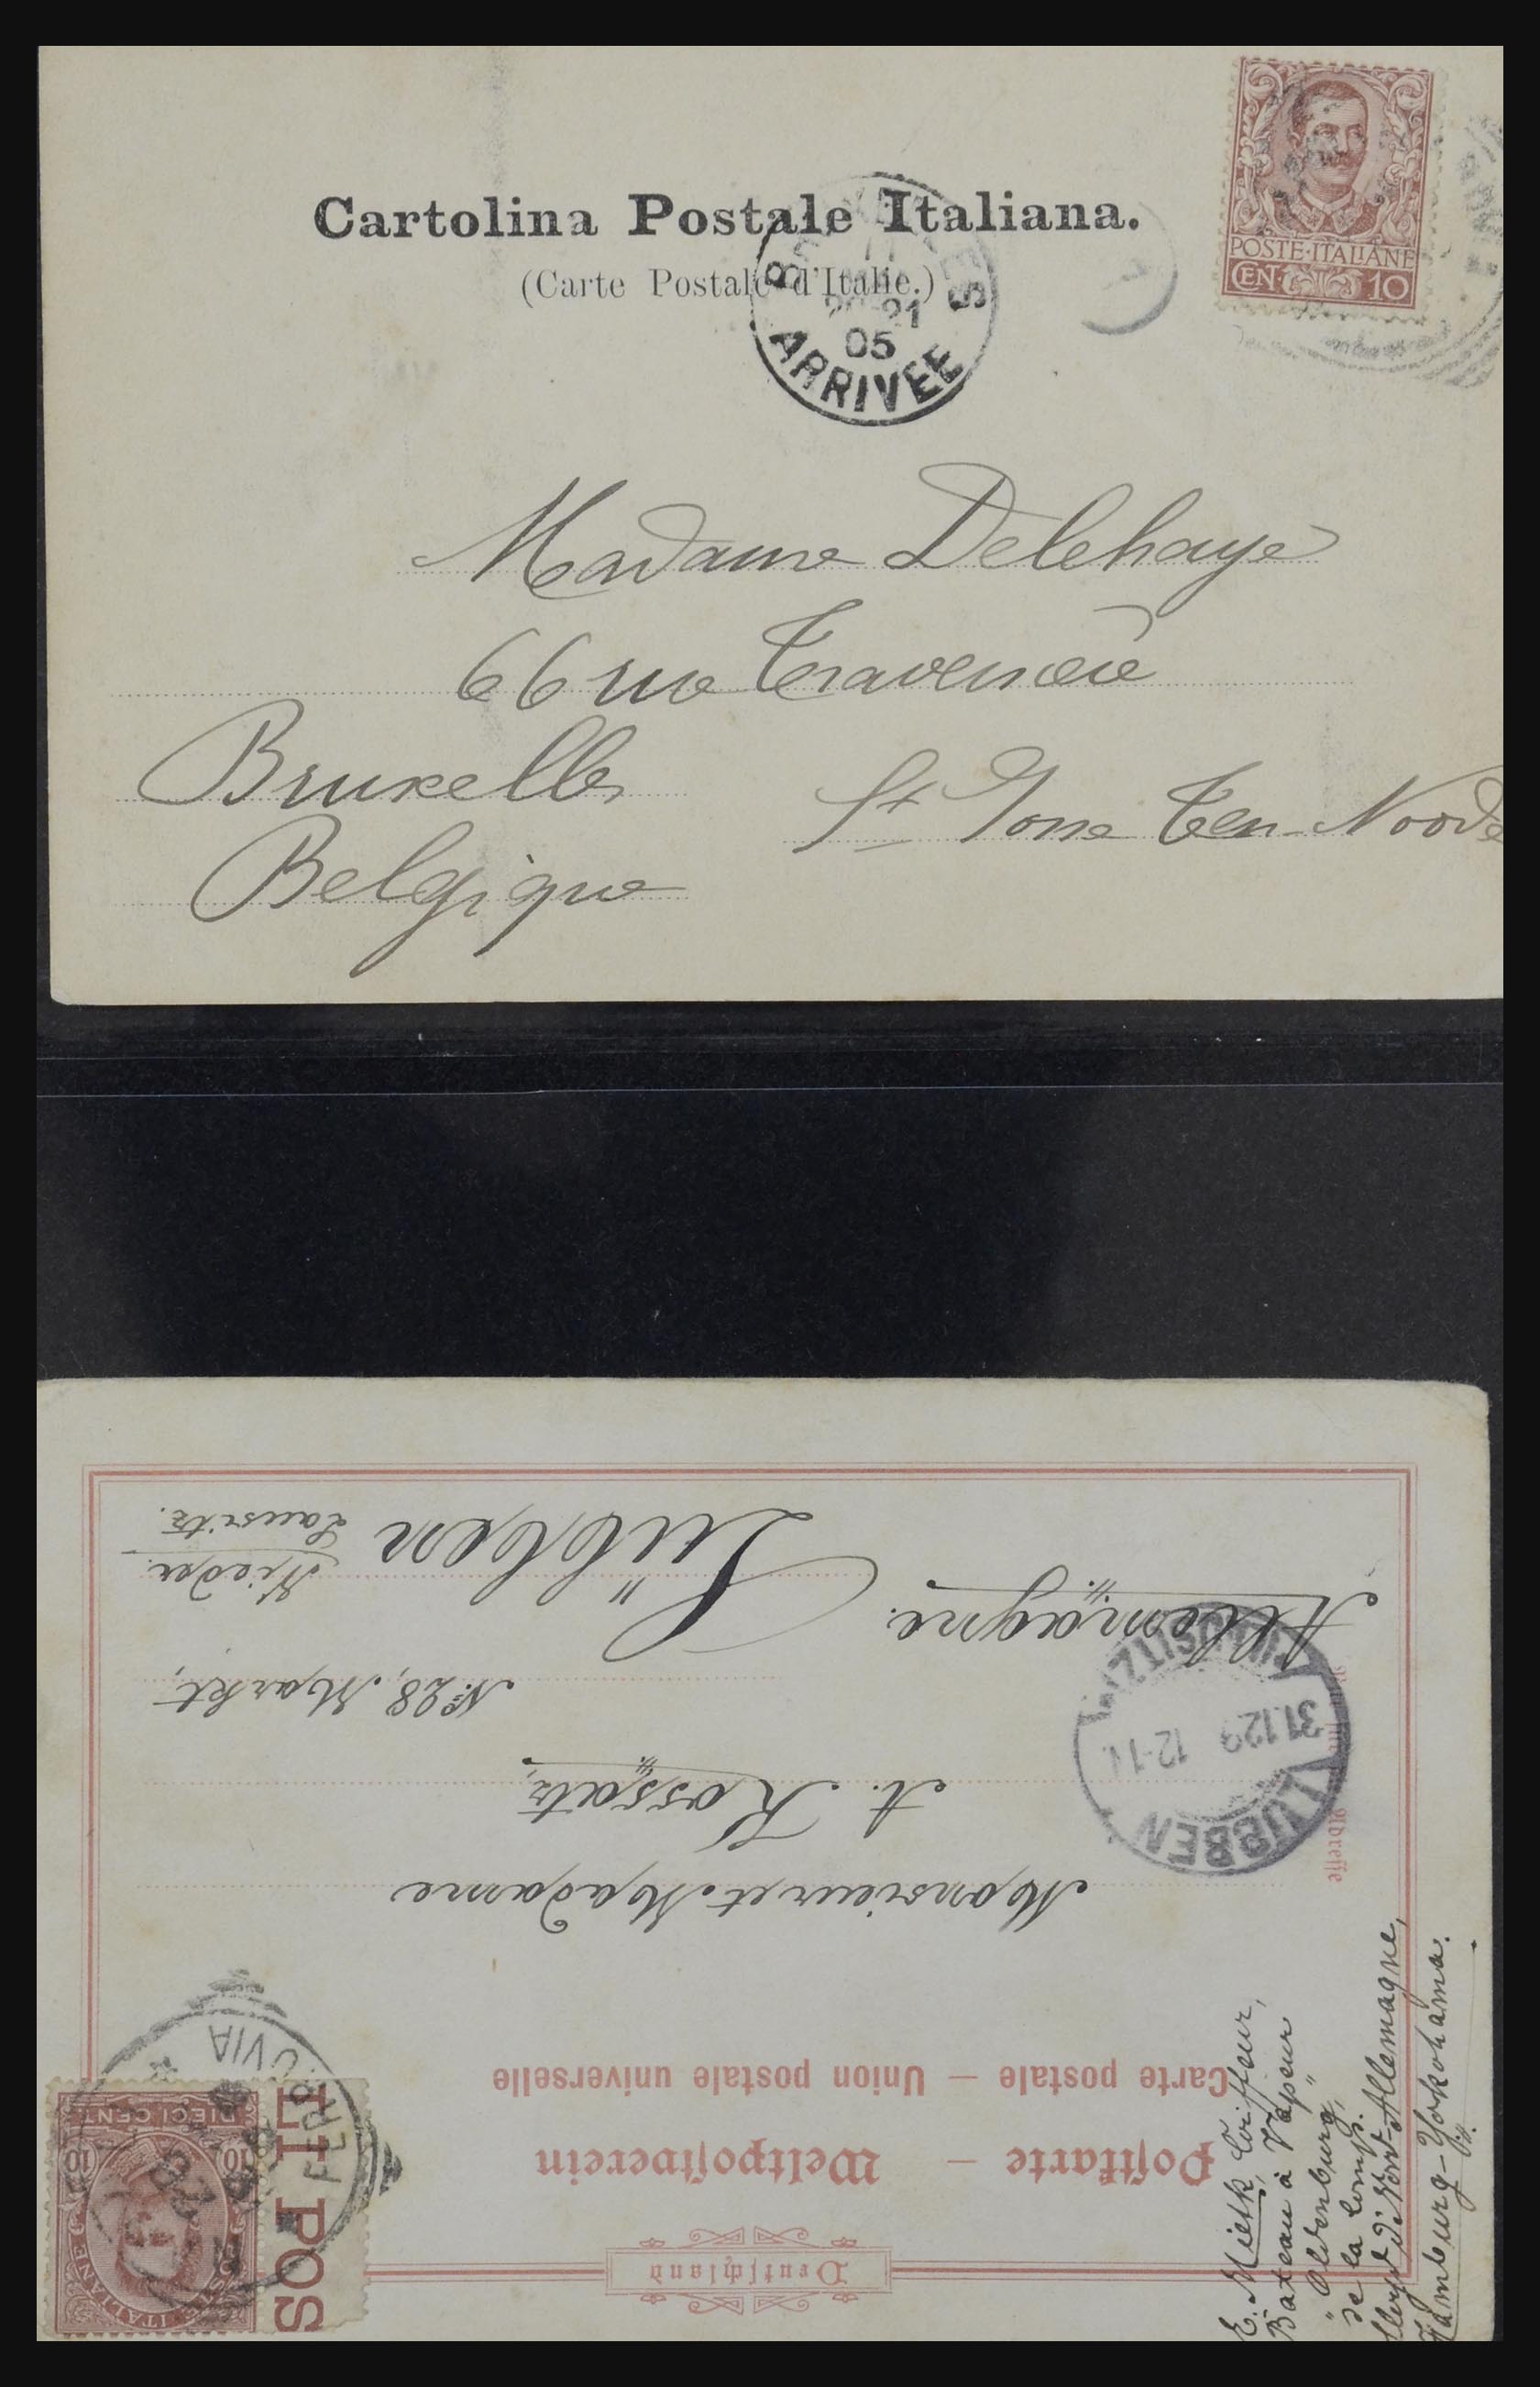 Cartolina Postale Italiana.
(Carte Postale d'Italie.)
POSTE·ITALIANE
CEN 10
21
05
ARRIVEE
Madame Delehaye
66 rue Traversière
Bruxelles
St Josse Ten-Noode
Belgique
Deutschland
Postkarte – Weltpostverein
Carte postale – Union postale universelle
DIECI CENT.
10 10
EI POS
FERROVIA
Monsieur et Madame
A. Kossatz,
No 28, Markt,
Lübben
Nieder
Lausitz.
Allemagne.
Adresse
LÜBBEN
31.12.9 12-1
E. Mietk, Coiffeur,
Bateau à Vapeur
"Oldenburg"
de la Comp.
Lloyd d. Nord-Allemagne,
Hamburg-Yokohama.